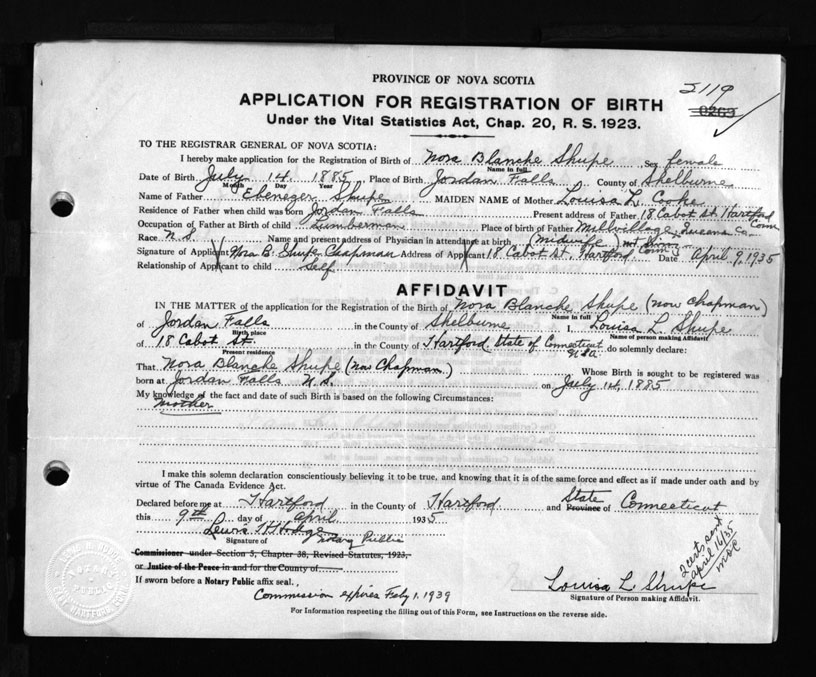 PROVINCE OF NOVA SCOTIA
2119
APPLICATION FOR REGISTRATION OF BIRTH
0263
Under the Vital Statistics Act, Chap. 20, R. S. 1923.
TO THE REGISTRAR GENERAL OF NOVA SCOTIA:
I hereby make application for the Registration of Birth of Nora Blanche Shupe Sex female
Name in full
Date of Birth July 14, 1885 Place of Birth Jordan Falls County of Shelburne
Month Day Year
Name of Father Ebenezer Shupe MAIDEN NAME of Mother Louisa L. Cooke
Residence of Father when child was born Jordan Falls Present address of Father 18 Cabot St. Hartford Conn
Occupation of Father at Birth of child Lumberman Place of birth of Father Millvillage, Queens Co.
Race N.S. Name and present address of Physician in attendance at birth (midwife) not living
Signature of Applicant Nora B. Shupe Chapman Address of Applicant 18 Cabot St. Hartford Conn Date April 9, 1935
Relationship of Applicant to child Self
AFFIDAVIT
IN THE MATTER of the application for the Registration of the Birth of Nora Blanche Shupe (now Chapman)
Name in full
of Jordan Falls in the County of Shelburne I, Louisa L. Shupe
Birth place Name of person making Affidavit
of 18 Cabot St. in the County of Hartford, State of Connecticut U.S.A. do solemnly declare:
Present residence
That Nora Blanche Shupe (now Chapman) Whose Birth is sought to be registered was
born at Jordan Falls N.S. on July 14, 1885
My knowledge of the fact and date of such Birth is based on the following Circumstances:
Mother
I make this solemn declaration conscientiously believing it to be true, and knowing that it is of the same force and effect as if made under oath and by
virtue of The Canada Evidence Act.
Declared before me at Hartford in the County of Hartford and State Province of Connecticut
this 9th day of April 1935
Lewis H Hodge
Signature of Notary Public
Commissioner under Section 3, Chapter 38, Revised Statutes, 1923,
or Justice of the Peace in and for the County of
If sworn before a Notary Public affix seal.
Commission expires Feby 1. 1939
2 certs sent
April 16/35
Louisa L. Shupe
Signature of Person making Affidavit.
For Information respecting the filling out of this Form, see Instructions on the reverse side.